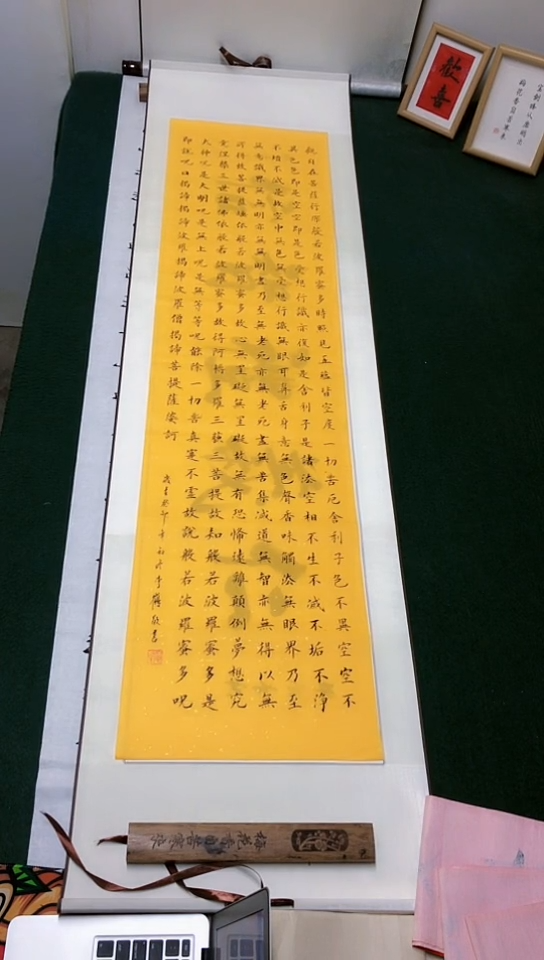 觀自在菩薩行深般若波羅蜜多時照見五蘊皆空度一切苦厄舍利子色不異空空不
異色色即是空空即是色受想行識亦復如是舍利子是諸法空相不生不滅不垢不淨
不增不減是故空中無色無受想行識無眼耳鼻舌身意無色聲香味觸法無眼界乃至
無意識界無無明亦無無明盡乃至無老死亦無老死盡無苦集滅道無智亦無得以無
所得故菩提薩埵依般若波羅蜜多故心無罣礙無罣礙故無有恐怖遠離顛倒夢想究
竟涅槃三世諸佛依般若波羅蜜多故得阿耨多羅三藐三菩提故知般若波羅蜜多是
大神呪是大明呪是無上呪是無等等呪能除一切苦真實不虛故說般若波羅蜜多呪
即說呪曰揭諦揭諦波羅揭諦波羅僧揭諦菩提薩婆訶
歲在癸卯年初冬李敬書
歡喜
宝劍鋒從磨礪出
梅花香自苦寒來
梅花香自苦寒來